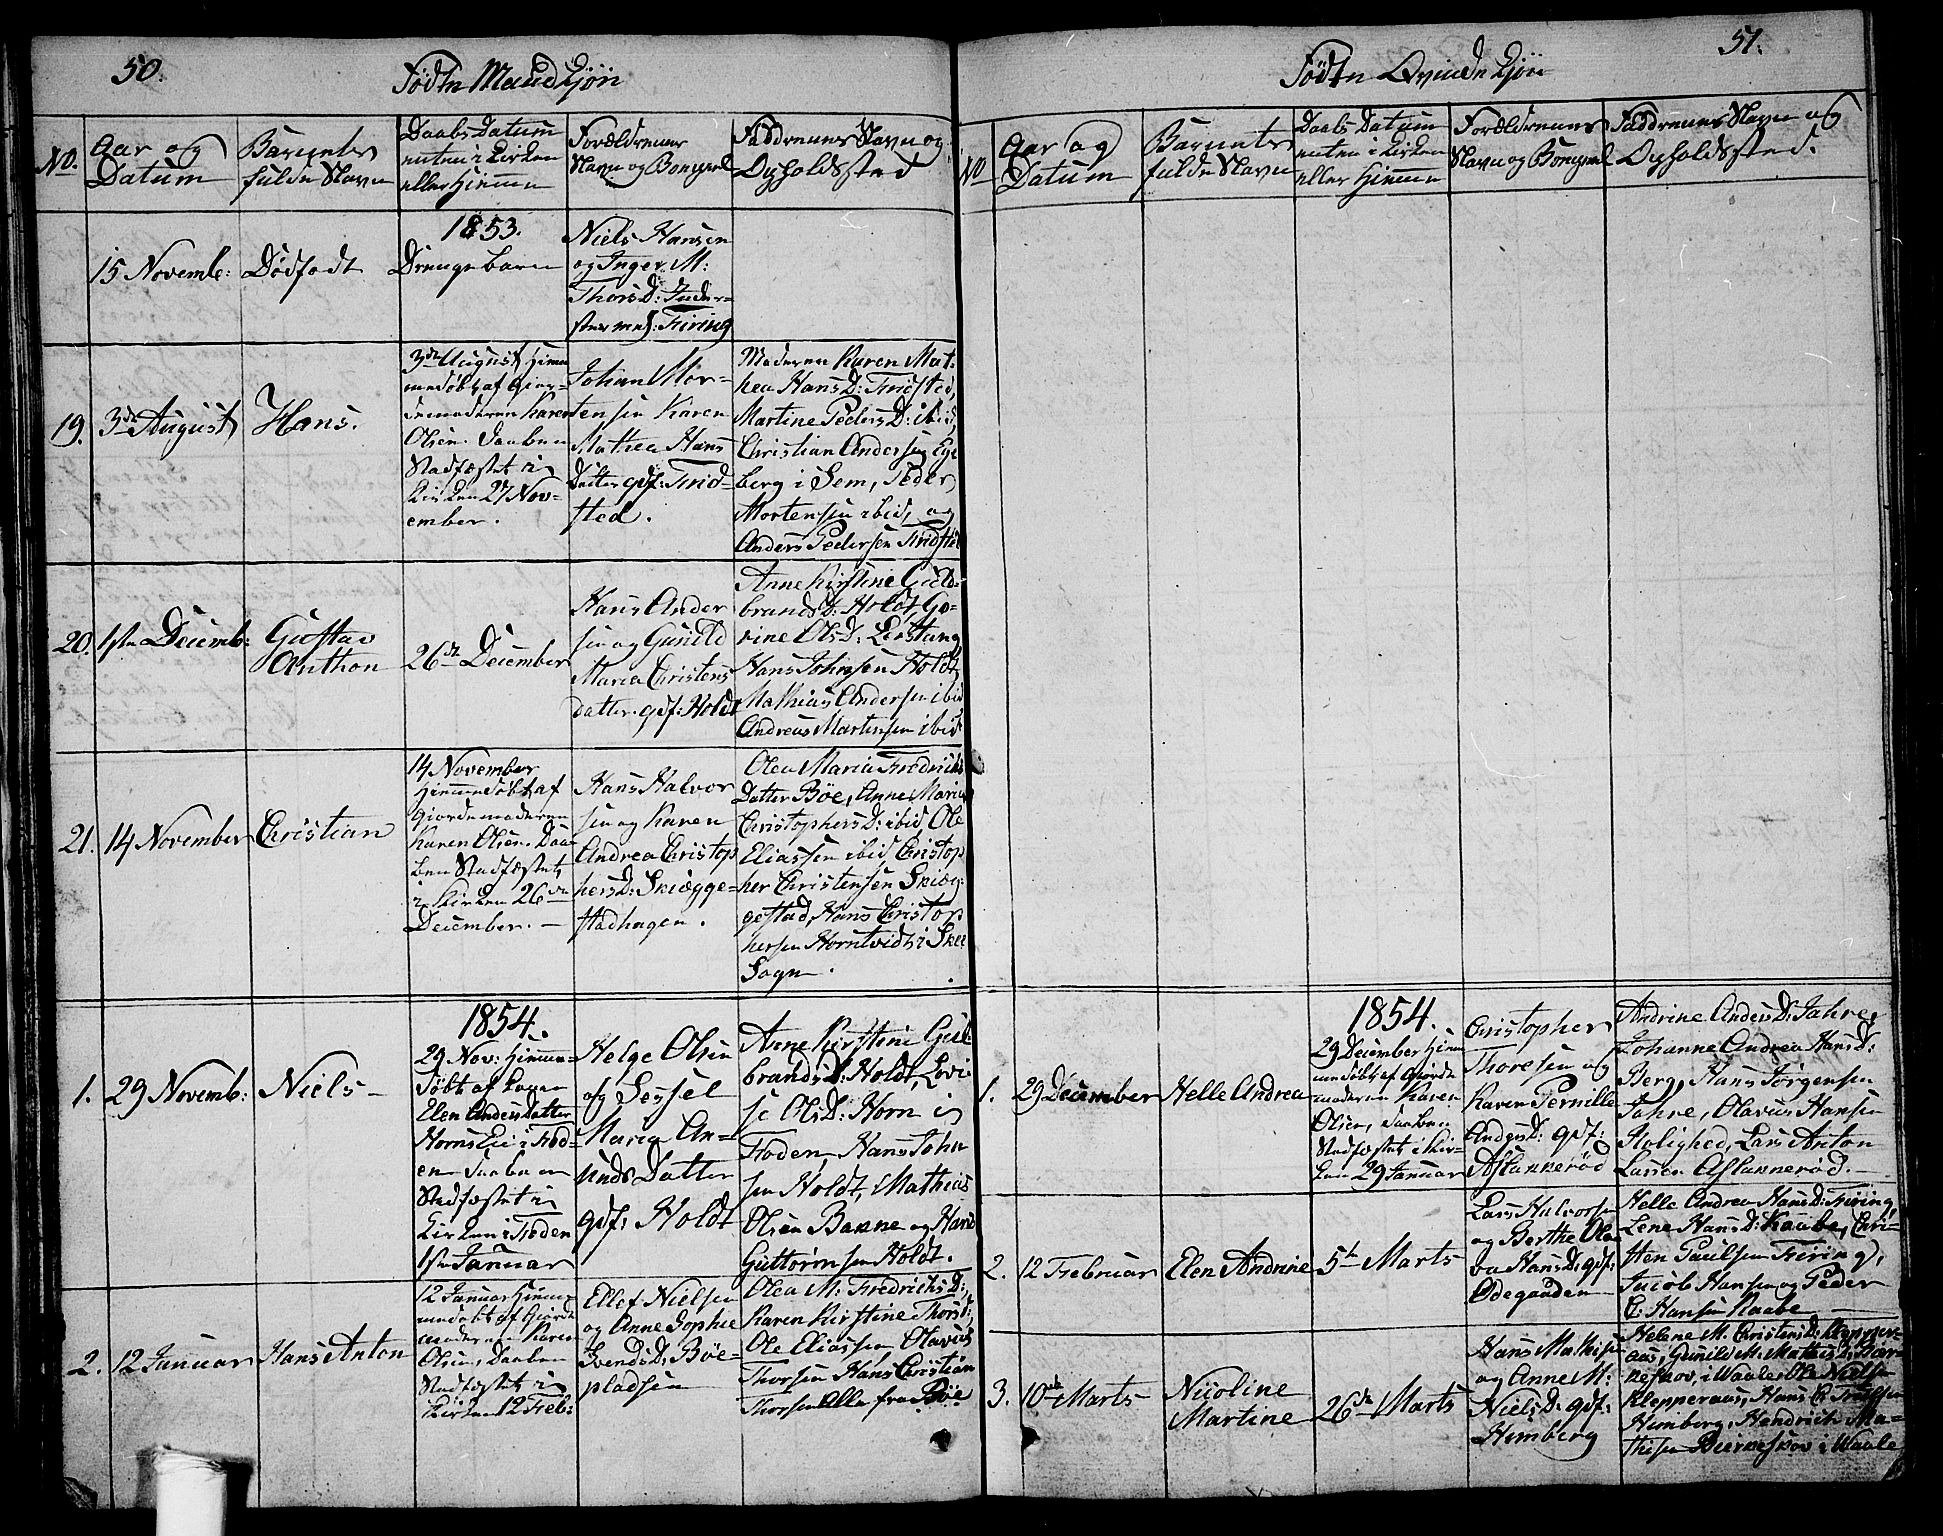 50.
Fødte Mandkjøn
No.
Aar og
Datum
Barnets
fulde Navn
Daabs Datum
enten i Kirken
eller Hjemme
Forældrenes
Navn og Borgerl
Faddrenes Navn og
Opholdssted
15 Novemb:
Dødfødt
1853.
Drengebarn
Niels Hansen
og Inger M:
Thorsd: Inder-
stes
Firing
19.
3de August
Hans.
3de August Hjem
medøbt af Gjor-
demoderen Karen
Olsen. Daaben
Stadfæstet i
Kirken 27 Nov-
ember.
Johan Mor-
tensen Karen
Mathea Hans
Datter gdf: Frid-
sted.
Moderen Karen Mat-
hea HansD: Fridsted,
Martine PedersD: ibid,
Christian Andersen Ege
berg i Sem, Peder
Mortensen ibid, og
Anders Pedersen Fridsted
20.
1ste Decemb:
Gustav
Anthon
26de December
Hans Ander
sen og Gunild
Maria Christens
datter. gdf: Holdt
Anne Kirstine Guld-
brandsD: Holdt, Go-
rine OlsD: Lerstang
Hans Johnsen Holdt,
Mathias Andersen ibid
Andreas Martinsen ibid
21.
14 November
Christian
14 November
Hjemmedøbt af
Gjordemoderen
Karen Olsen. Daa-
ben Stadfæstet
i Kirken 26de
December. -
Hans Halvor
sen og Karen
Andrea Christop
hersD: Skiægge-
stadhagen.
Olea Maria Fredriks
Datter Bøe, Anne Maria
ChristophersD: ibid, Ole
Eliassen ibid, Christop
her Christensen Skiæg-
gestad, Hans Christop
hersen Horntvidt i Skee
Sogn.
1.
29 Novemb:
Niels -
1854.
29 Nov: Hjemme-
døbt af Konen
Elen AndersDatter
Horns Eie i Fod-
en Daaben
Stadfæstet i
Kirken i Foden
1ste Januar
Helge Olsen
og Sessel
Maria An-
unds Datter
gdf: Holdt
Anne Kirstine Gul
brandsD: Holdt, Lovi-
se OlsD: Horn i
Foden, Hans John
sen Holdt, Mathias
Olsen Bakke og Hans
Guttormsen Holdt.
2.
12 Januar
Hans Anton
12 Januar Hjem-
medøbt af Gjorde
moderen Karen
Olsen, Daaben
Stadfæstet i
Kirken 12 Feb:
Ellef Nielsen
og Anne Sophie
SvendsD: Bøe-
pladsen
Olea M: FredrichsD:,
Karen Kirstine ThorsD:,
Ole Eliassen, Olavus
Thorsen Hans Christian
Thorsen Alle fra Bøe
51.
Fødte Qvindekjøn
No
Aar og
Datum
Barnets
fulde Navn
Daabs Datum
enten i Kirken
eller Hjemme
Forældrenes
Navn og Borgerl
Faddrenes Navn og
Opholdssted.
1.
29 December
Helle Andrea
1854.
29 December Hjem
medøbt af Gjorde
moderen Karen
Olsen, Daaben
Stadfæstet i Kir-
ken 29 Januar
Christopher
Thoresen og
Karen Pernille
AndersD: gdf:
Aslannerød
Andrine AndersD: Jahre,
Johanne Andrea HansD:
Berg, Hans Jørgensen
Jahre, Olavus Hansen
Rolighed, Lars Anton
Larsen Aslannerød. -
2.
12 Februar
Elen Andrine
5te Marts
Lars Halvorsen
og Berthe Olea
HansD: gdf:
Ødegaarden
Helle Andrea HansD: Firing,
Lene HansD: Raabe, Chri-
sten Paulsen Firing,
Jacob Hansen og Peder
C: Hansen Raabe
3.
10de Marts
Nicoline
Martine
26de Marts
Hans Mathisen
og Anne M:
NielsD: gdf:
Himberg
Helene M. ChristensD: Klepper-
aas, Gunild M. MathisD: Bær-
keskov i Waale, Ole Nielsen
Klepperaas, Hans
Himberg, Hendrich Ma-
thisen Bierkeskov i Waale